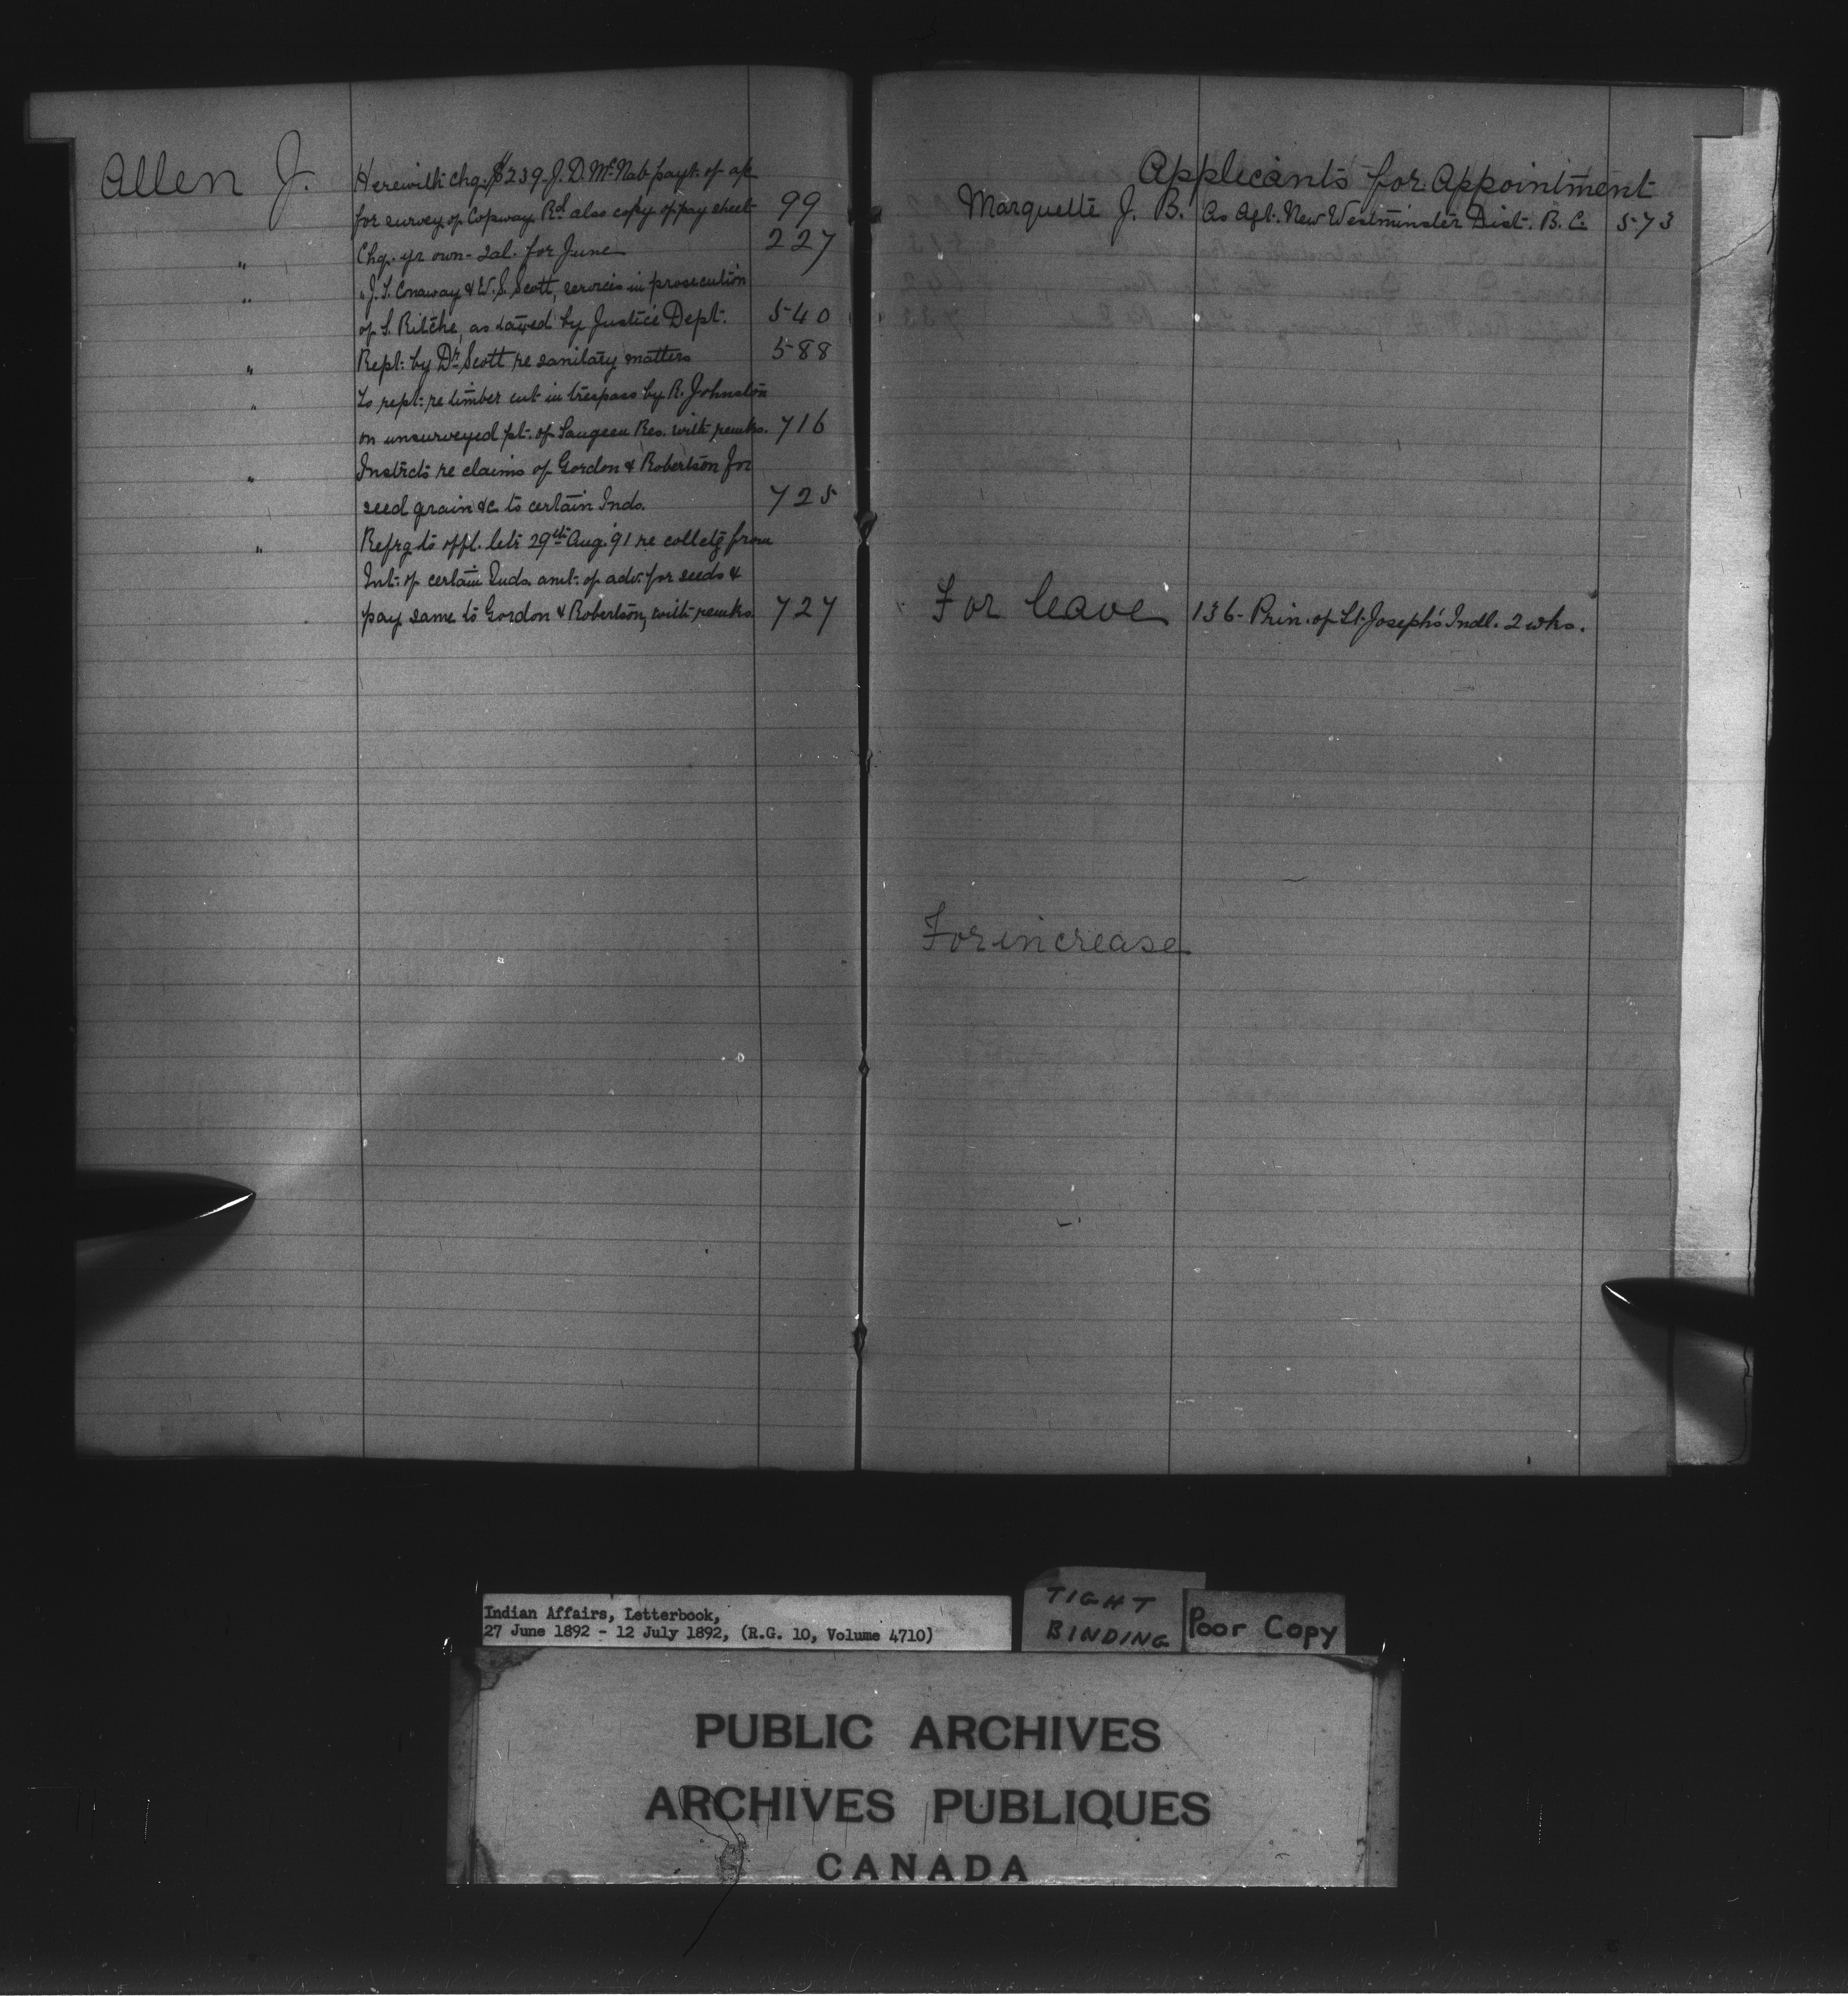 Allen J. Herewith chq. $239. J. D. McNab payt. of a/c
for survey of Copway Rd also copy of pay sheet 99
" Chq. yr own - Sal. for June 227
" " J. T. Conaway & W. S. Scott, services in prosecution
of S. Ritchie, as taxed by Justice Dept. 540
" Rept. by Dr. Scott re sanitary matters 588
" To rept. re timber cut in trespass by R. Johnston
on unsurveyed pt. of Saugeen Res. with remks. 716
" Instrcts re claims of Gordon & Robertson for
seed grain &c to certain Inds. 725
" Refrg to offl. letr 29th Aug. '91 re colletg from
Int. of certain Inds. amt. of adv. for seeds &
pay same to Gordon & Robertson, with remks. 727
Applicants for Appointment
Marquette J. B. As Agt. New Westminster Dist. B. C. 573
For leave 136 - Prin. of St. Joseph's Indl. 2 wks.
For increase
Indian Affairs, Letterbook,
27 June 1892 - 12 July 1892, (R.G. 10, Volume 4710)
TIGHT
BINDING
Poor Copy
PUBLIC ARCHIVES
ARCHIVES PUBLIQUES
CANADA